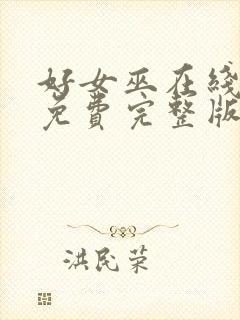 好女巫在线
免费完整版
洪民荣